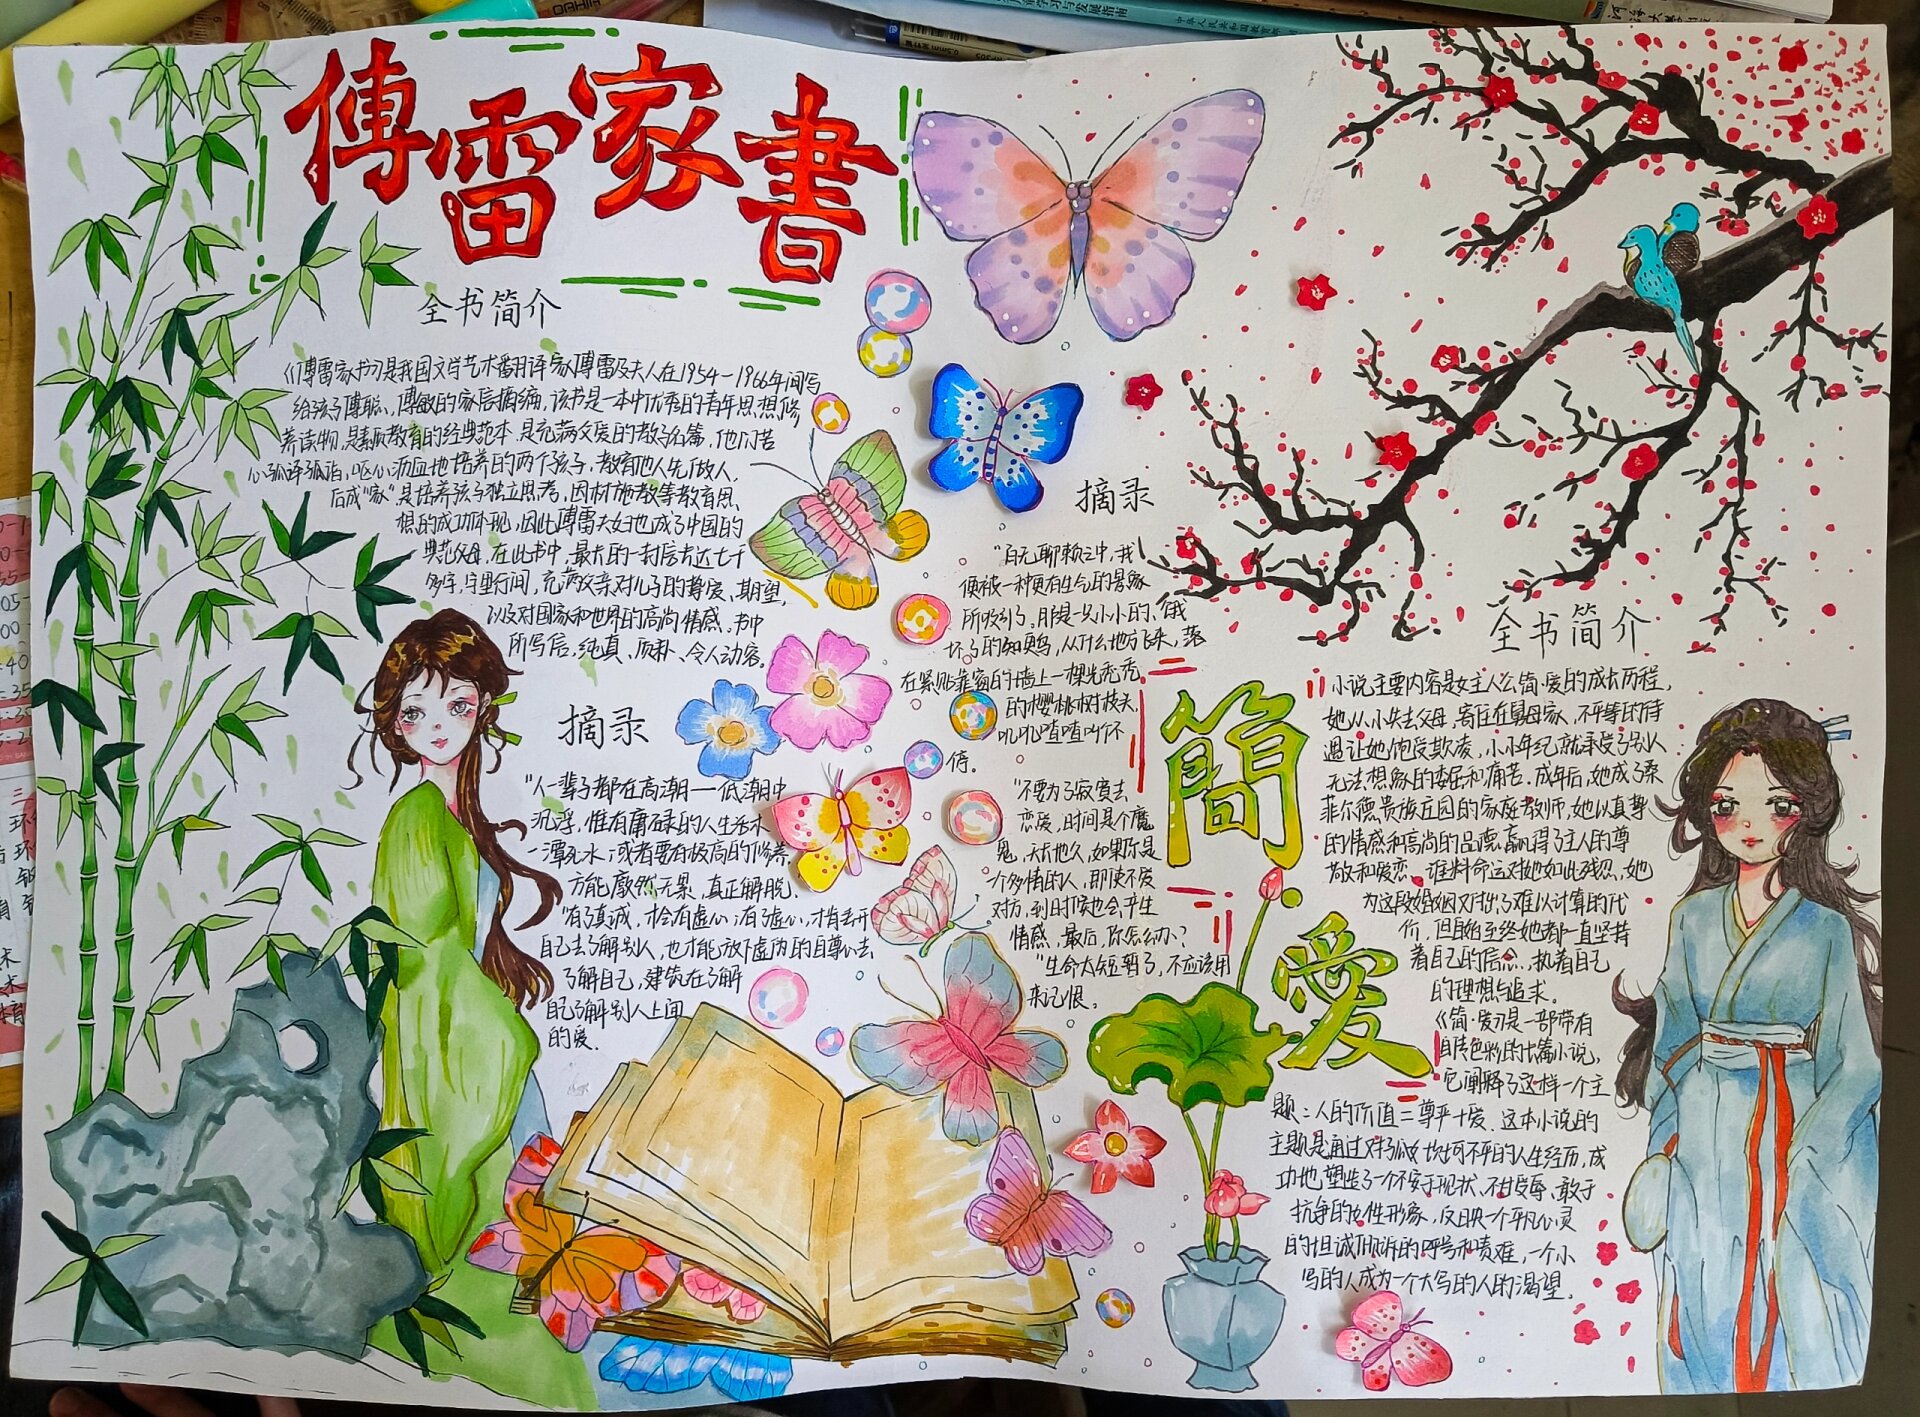 傅雷家書
全书简介
《傅雷家书》是我国文学艺术翻译家傅雷及夫人在1954-1966年间写
给孩子傅聪、傅敏的家信摘编,该书是一本优秀的青年思想修
养读物,是素质教育的经典范本,是充满父爱的教子名篇,他们苦
心孤诣,呕心沥血地培养的两个孩子,教育他人先做人,
后成"家",是培养孩子独立思考,因材施教等教育思
想的成功体现,因此傅雷夫妇也成了中国的
典范父母,在此书中,最长的一封信长达七千
多字,字里行间,充满父亲对儿子的挚爱、期望,
以及对国家和世界的高尚情感、书中
所写后,纯真、质朴、令人动容。
摘录
"人一辈子都在高潮——低潮中
沉浮,惟有庸碌的人生活水
一潭死水;或者要有极高的修养,
方能廓然无累,真正解脱、
"有了真诚,才会有虚心,有了虚心,才肯丢开
自己去了解别人,也才能放下虚伪的自尊心去
了解自己,建筑在了解
自己了解别人上面
的爱、
摘录
"百无聊赖之中,我
便被一种更有生气的景象
所吸引了,那是一只小小的、饿
坏了的知更鸟,从什么地方飞来,落
在紧贴靠窗的墙上一棵光秃秃
的樱桃树枝头,
叽叽喳喳叫个不
停。
"不要为了寂寞去
恋爱,时间是个魔
鬼,天长地久,如果你是
一个多情的人,即使不爱
对方,到时候也会产生
情感,最后,你怎么办?
"生命太短暂了,不应该用
来记恨。
簡·愛
全书简介
小说主要内容是女主人公简·爱的成长历程,
她从小失去父母,寄住在舅母家,不平等的待
遇让她饱受欺凌,小小年纪就承受了别人
无法想象的委屈和痛苦.成年后,她成了桑
菲尔德贵族庄园的家庭教师,她以真挚
的情感和高尚的品德赢得了主人的尊
敬和爱恋、谁料命运对她如此残忍,她
为这段婚姻又付出了难以计算的代
价,但自始至终她都一直坚持
着自己的信念,执着自己
的理想与追求。
《简·爱》是一部带有
自传色彩的长篇小说,
它阐释了这样一个主
题:人的价值=尊严+爱、这本小说的
主题是通过对孤女坎坷不平的人生经历,成
功地塑造了一个不安于现状、不甘受辱、敢于
抗争的女性形象,反映一个平凡心灵
的坦诚倾诉的呼号和责难,一个小
写的人成为一个大写的人的渴望。